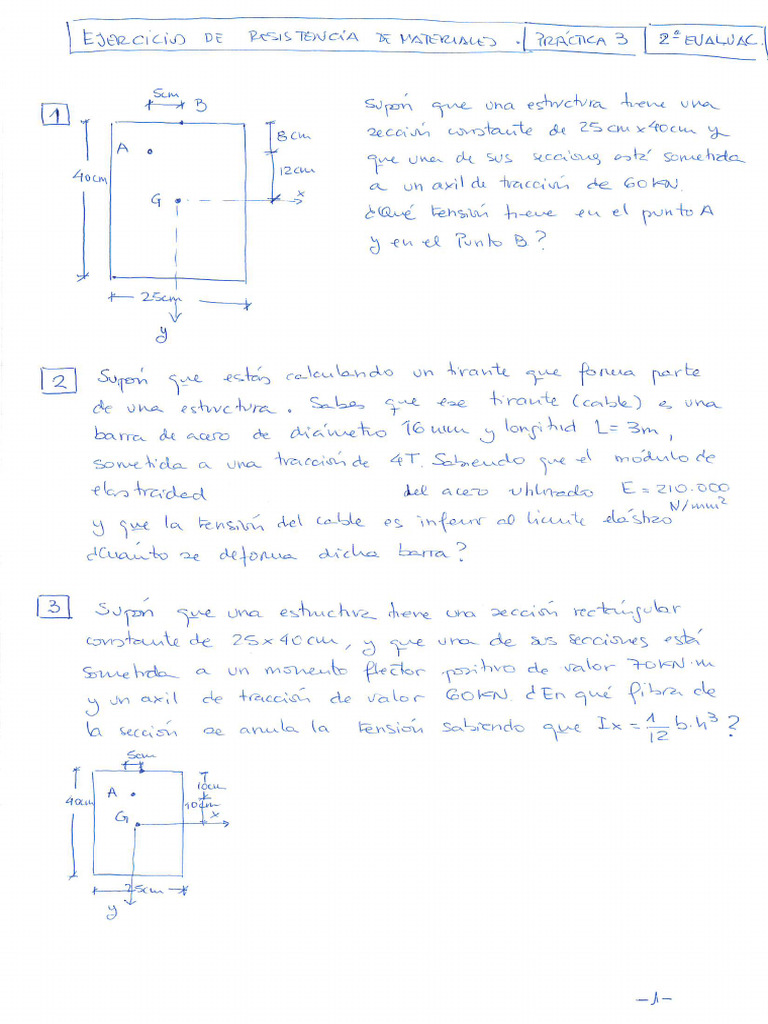 EJERCICIOS DE RESISTENCIA DE MATERIALES. PRÁCTICA 3 2ª EVALUAC.
1
5cm
B
A
8cm
12cm
40cm
G
x
25cm
y
Supón que una estrctura tiene una
sección constante de 25cm x 40cm y
que una de sus secciones está sometida
a un axil de tracción de 60KN.
¿Qué tensión tiene en el punto A
y en el Punto B?
2 Supón que estás calculando un tirante que forma parte
de una estrctura. Sabes que ese tirante (cable) es una
barra de acero de diámetro 16mm y longitud L=3m,
sometida a una tracción de 4T. Sabiendo que el módulo de
elasticidad del acero utilizado E=210.000
N/mm²
y que la tensión del cable es inferior al límite elástico
¿Cuánto se deforma dicha barra?
3 Supón que una estructura tiene una sección rectángular
constante de 25x40cm, y que una de sus secciones está
sometida a un momento flector positivo de valor 70KN·m
y un axil de tracción de valor 60KN. ¿En qué fibra de
la sección se anula la tensión sabiendo que Ix = 1/12 b.h³?
5cm
A
10cm
10cm
40cm
G
x
25cm
y
-1-